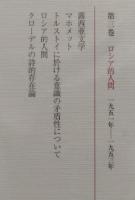 第三巻 ロシア的人間 一九五一年――一九五三年
露西亜文学
マホメット
トルストイに於ける意識の矛盾性について
ロシア的人間
クローデルの詩的存在論